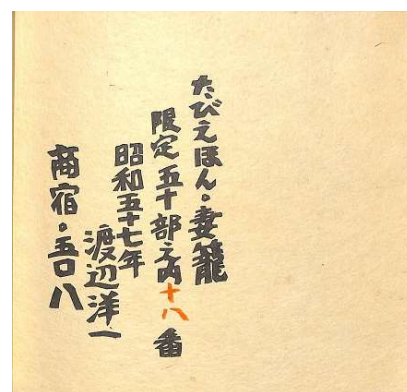 たびえほん。妻籠
限定五十部之内十八番
昭和五十七年
渡辺洋一
商宿。五〇八